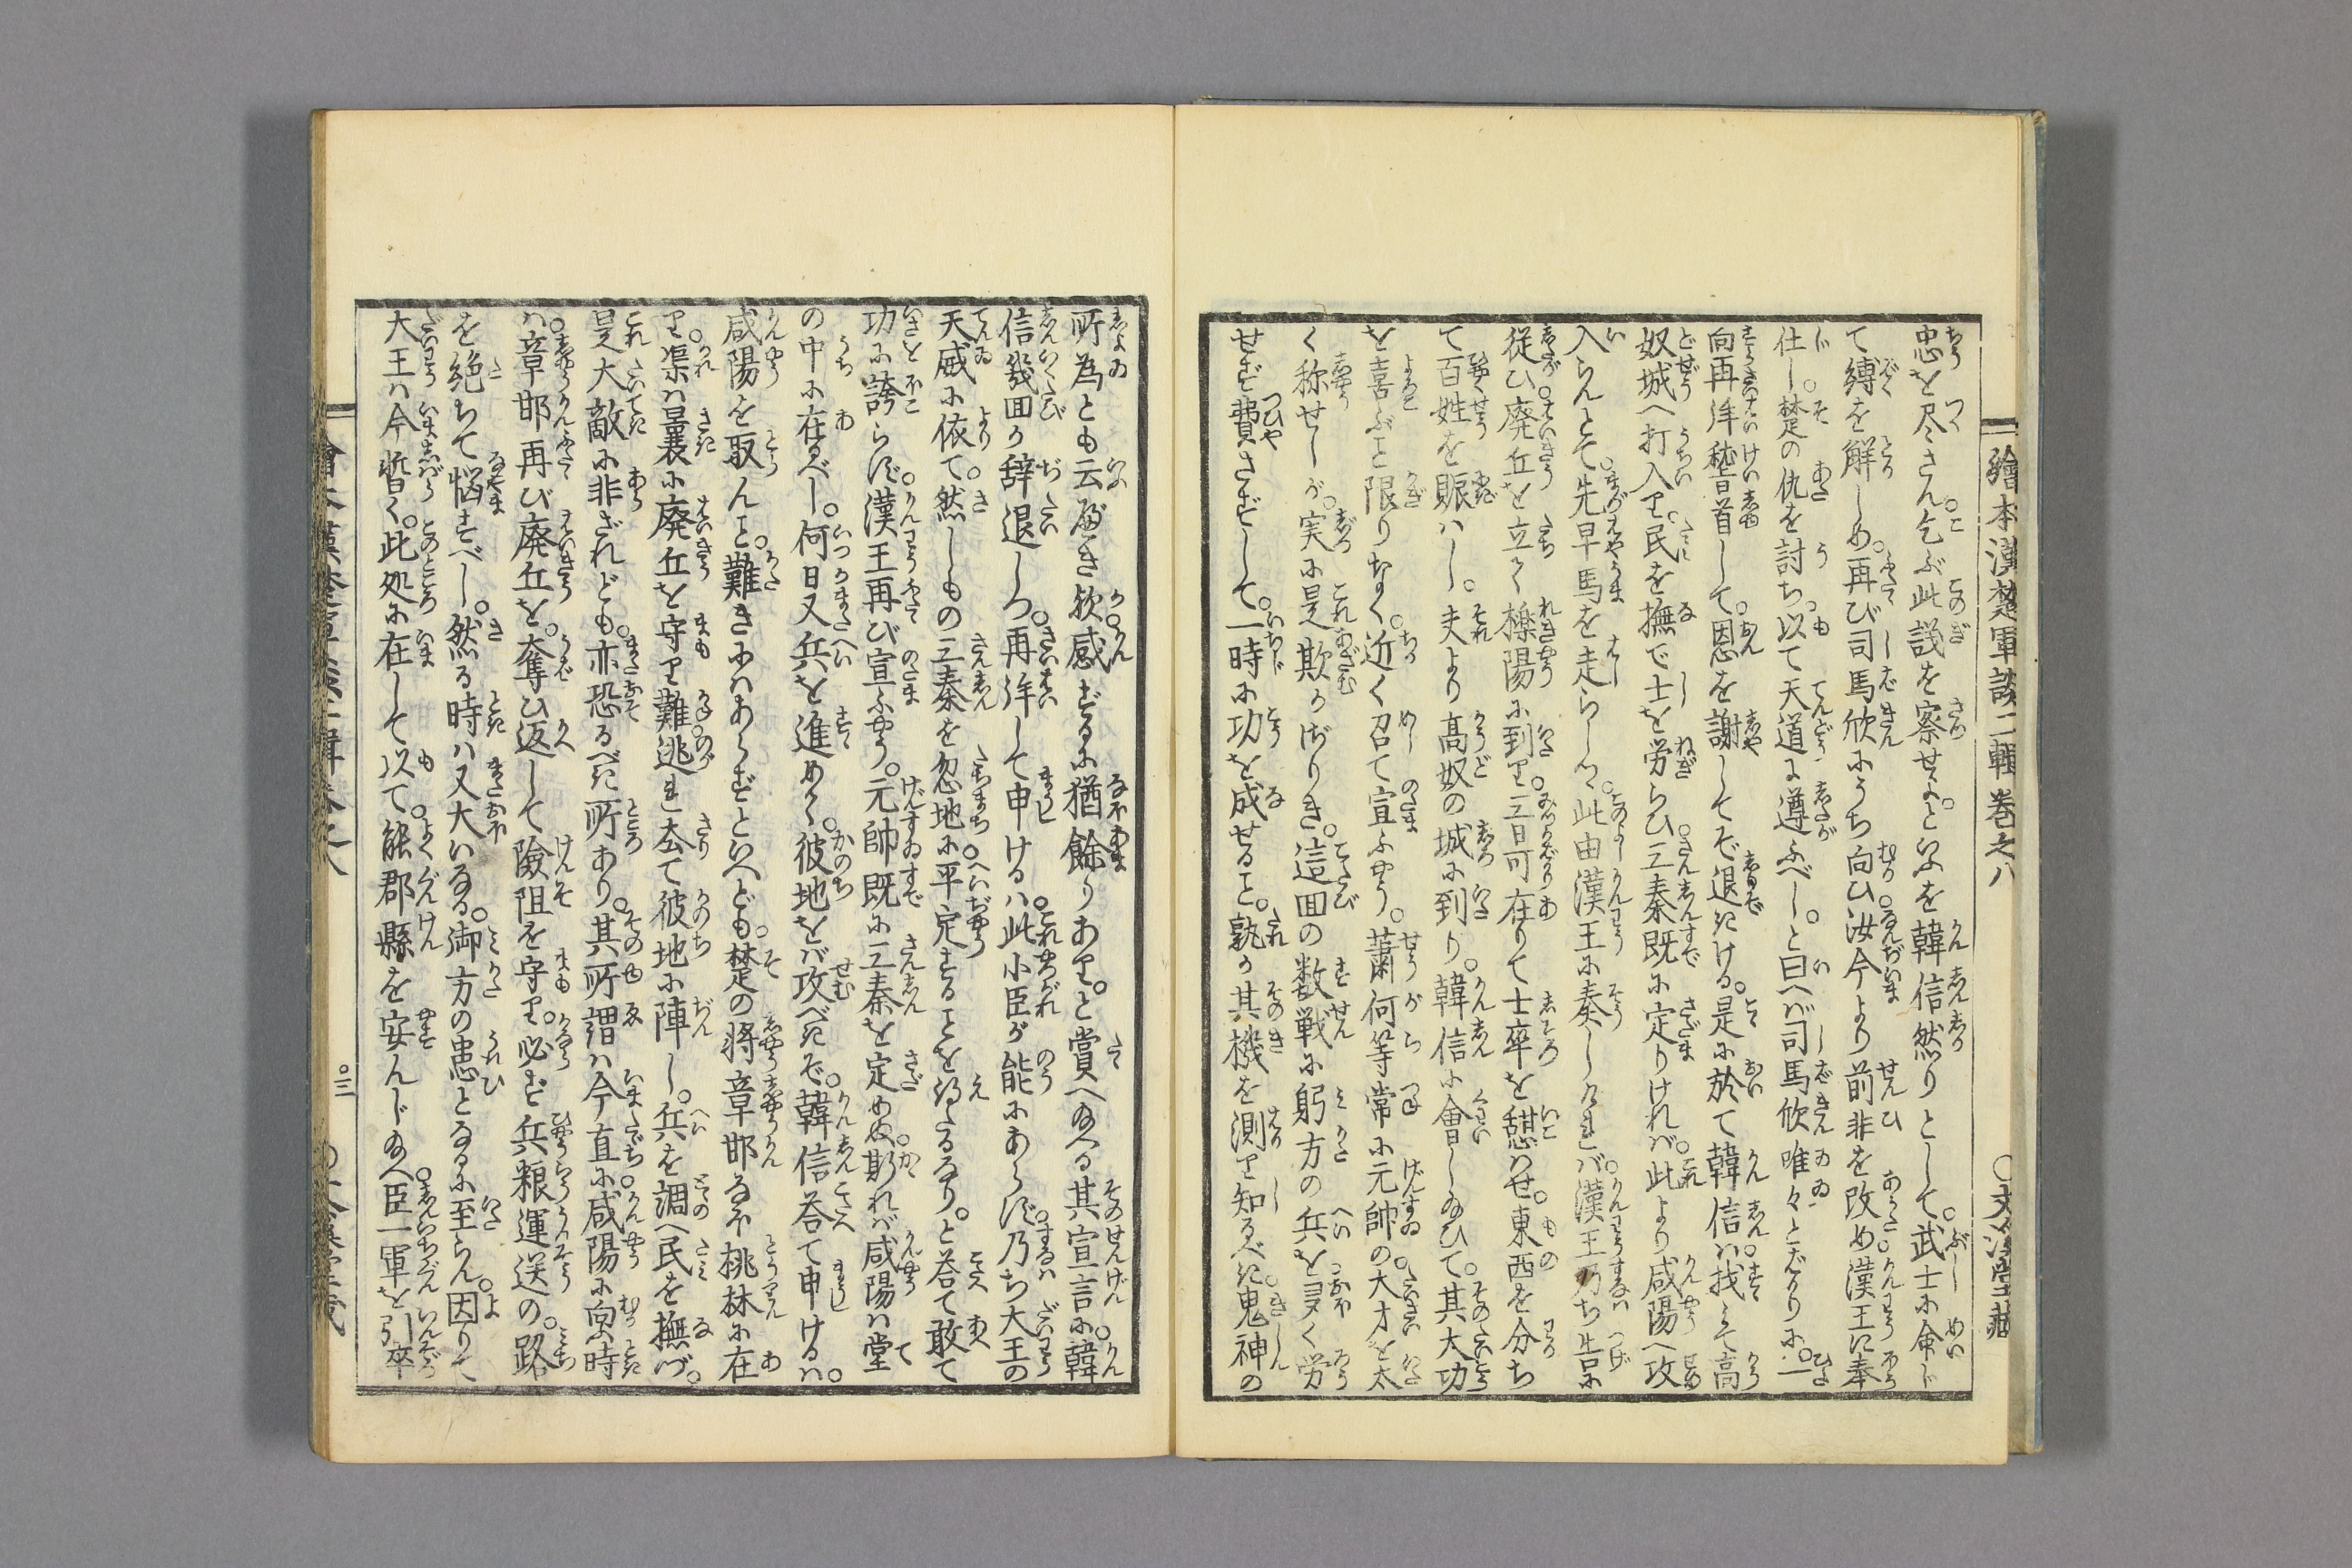 繪本漢楚軍談二輯巻之八
忠を尽さん。乞ふ此議を察せよ。といふを韓信然りとして。武士に命じ
て縛を解しめ。再び司馬欣にうち向ひ。汝今より前非を改め。漢王に奉
仕し。楚の仇を討ち。以て天道に遵ふべし。と曰へば司馬欣唯々とばかりに。一
向再拝稽首して。恩を謝してぞ退きける。是に於て韓信は。找みて高
奴城へ打入り。民を撫で士を労らひ。三秦既に定りければ。此より咸陽へ攻
入らんとて。先早馬を走らしつ。此由漢王に奏しければ。漢王乃ち告に
従ひ。廃丘を立て櫟陽に到り。三日可在りて士卒を憇はせ。東西を分ち
て百姓を賑はし。夫より高奴の城に到り。韓信に會しゐひて。其大功
を喜ぶこと限りなく。近く召て宣ふやう。蕭何等常に元帥の。大才を太
く称せしが。実に是欺かざりき。這回の数戦に躬方の兵を。多く労
せず費さずして。一時に功を成せること。孰か其機を測り知るべき。鬼神の
所為とも云べき歟。感ずるに猶餘りあり。と賞へ給へる其宣言に。韓
信幾回か辞退しつ。再拝して申けるは。此小臣が能にあらず。乃ち大王の
天威に依て。然しもの三秦を忽地に。平定することを得たるなり。と荅て敢て
功に誇らず。漢王再び宣ふやう。元帥既に三秦を定めぬ。斯れば咸陽は堂
の中に在るべし。何日又兵を進めて。彼地をば攻べきぞ。韓信荅て申けるは。
咸陽を取んこと。難きにはあらずといへども。楚の将章邯なほ桃林に在
り。渠は曩に廃丘を守り難。逃れ去て彼地に陣し。兵を調へ民を撫づ。
是大敵に非ざれども。亦恐るべき所あり。其所謂は今直に。咸陽に向ふ時
は。章邯再び廃丘を。奪ひ返して險阻を守り。必ず兵粮運送の。路
を絶ちて悩すべし。然る時は又大いなる。御方の患となるに至らん。因りて
大王は今暫く。此処に在して以て。能郡縣を安んじ給へ。臣一軍を引卒